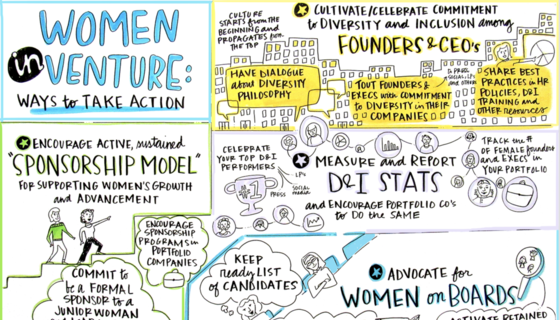 WOMEN
in
VENTURE:
WAYS to TAKE ACTION
CULTURE
STARTS from the
BEGINNING and
PROPAGATES from
the TOP
CULTIVATE/CELEBRATE COMMITMENT
to DIVERSITY and INCLUSION among
FOUNDERS & CEO's
HAVE DIALOGUE
about DIVERSITY
PHILOSOPHY
TOUT FOUNDERS &
EXECS with COMMITMENT
to DIVERSITY in THEIR
COMPANIES
to PRESS,
SOCIAL, LPs
and OTHERS
SHARE BEST
PRACTICES in HR
POLICIES, D&I
TRAINING and
other resources
ENCOURAGE ACTIVE, sustained
"SPONSORSHIP MODEL"
FOR SUPPORTING WOMEN'S GROWTH
and ADVANCEMENT
ENCOURAGE
SPONSORSHIP
PROGRAMS in
PORTFOLIO
COMPANIES
COMMIT to
be a FORMAL
SPONSOR to a
JUNIOR WOMAN
CELEBRATE
YOUR TOP D&I
PERFORMERS
#1
LPs
PRESS
SOCIAL
media
MEASURE and REPORT
D&I STATS
and ENCOURAGE PORTFOLIO CO's
to DO the SAME
TRACK the #
OF FEMALE founders
and EXECS in
YOUR PORTFOLIO
KEEP
ready LIST
of CANDIDATES
ADVOCATE for
WOMEN on BOARDS
ACTIVATE RETAINED